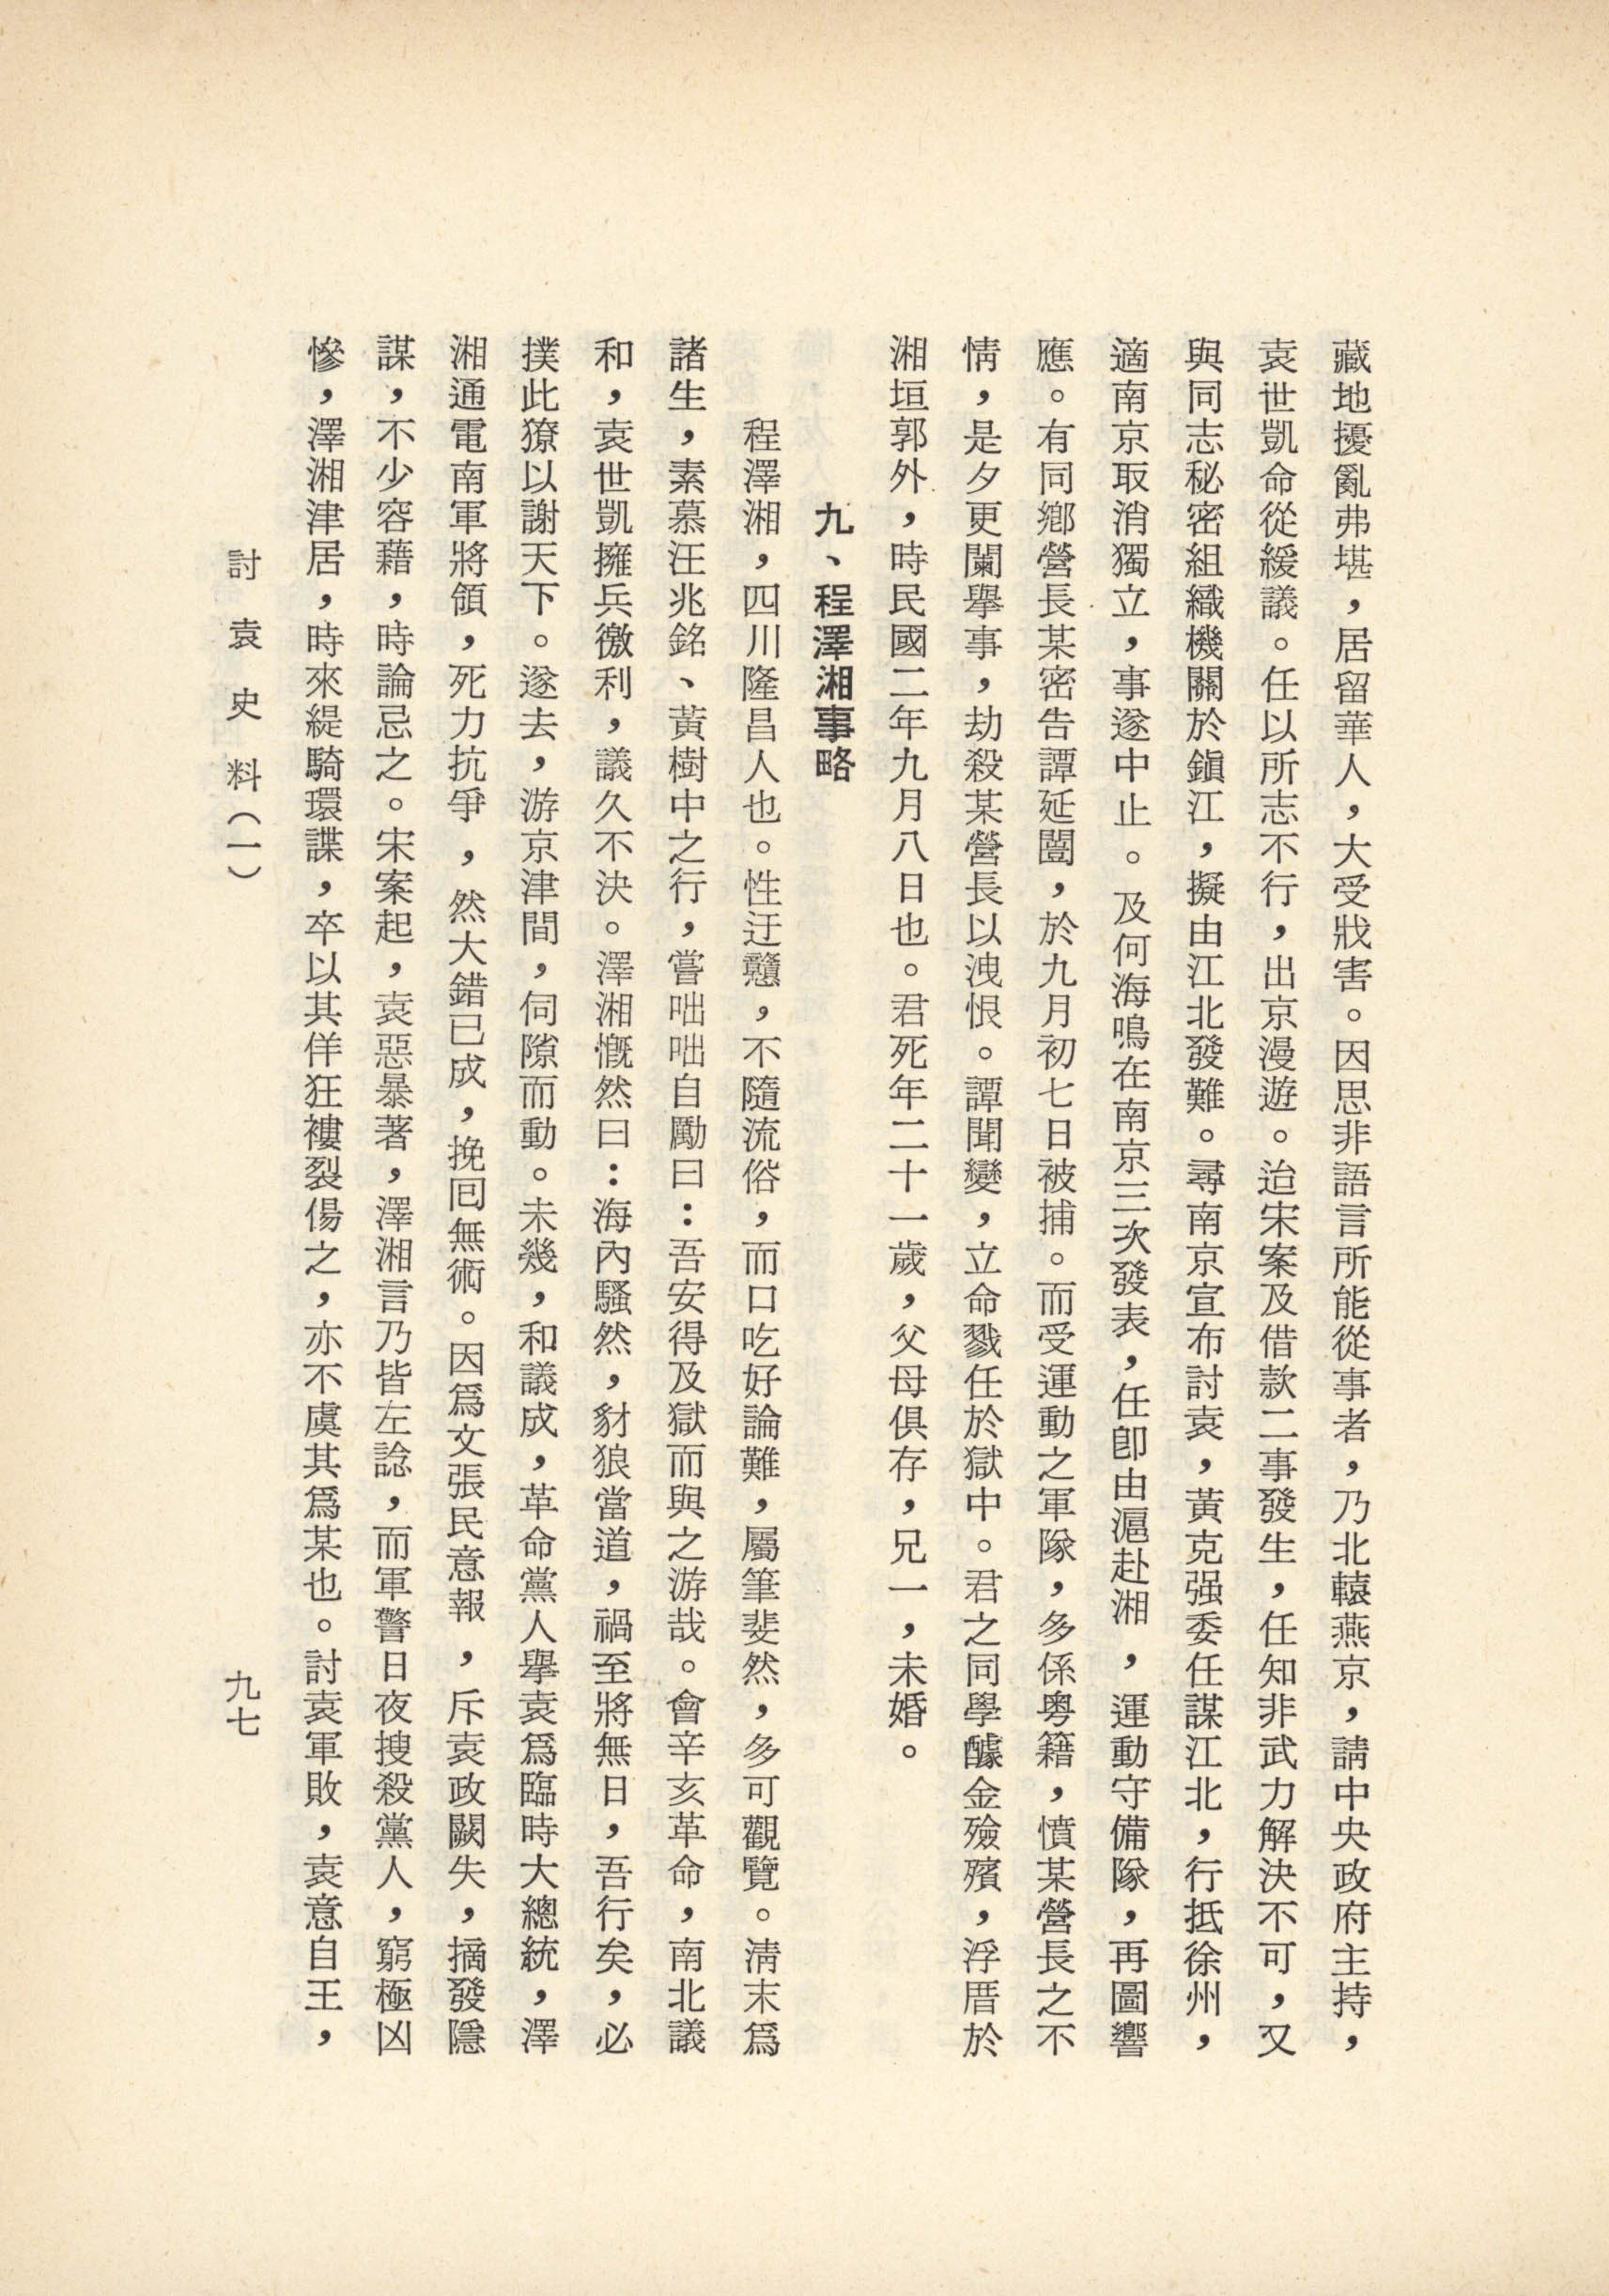 藏地擾亂弗堪，居留華人，大受戕害。因思非語言所能從事者，乃北轅燕京，請中央政府主持，
袁世凱命從緩議。任以所志不行，出京漫遊。迨宋案及借款二事發生，任知非武力解決不可，又
與同志秘密組織機關於鎭江，擬由江北發難。尋南京宣布討袁，黃克强委任謀江北，行抵徐州，
適南京取消獨立，事遂中止。及何海鳴在南京三次發表，任卽由滬赴湘，運動守備隊，再圖響
應。有同鄉營長某密告譚延闓，於九月初七日被捕。而受運動之軍隊，多係粤籍，憤某營長之不
情，是夕更闌擧事，劫殺某營長以洩恨。譚聞變，立命戮任於獄中。君之同學醵金殮殯，浮厝於
湘垣郭外，時民國二年九月八日也。君死年二十一歲，父母俱存，兄一，未婚。
九、程澤湘事略
程澤湘，四川隆昌人也。性迂戇，不隨流俗，而口吃好論難，屬筆斐然，多可觀覽。淸末爲
諸生，素慕汪兆銘、黃樹中之行，嘗咄咄自勵曰：吾安得及獄而與之游哉。會辛亥革命，南北議
和，袁世凱擁兵徼利，議久不決。澤湘慨然曰：海內騷然，豺狼當道，禍至將無日，吾行矣，必
撲此獠以謝天下。遂去，游京津間，伺隙而動。未幾，和議成，革命黨人擧袁爲臨時大總統，澤
湘通電南軍將領，死力抗爭，然大錯已成，挽囘無術。因爲文張民意報，斥袁政闕失，摘發隱
謀，不少容藉，時論忌之。宋案起，袁惡暴著，澤湘言乃皆左諗，而軍警日夜搜殺黨人，窮極凶
慘，澤湘津居，時來緹騎環諜，卒以其佯狂褸裂傷之，亦不虞其爲某也。討袁軍敗，袁意自王，
討袁史料（一）
九七